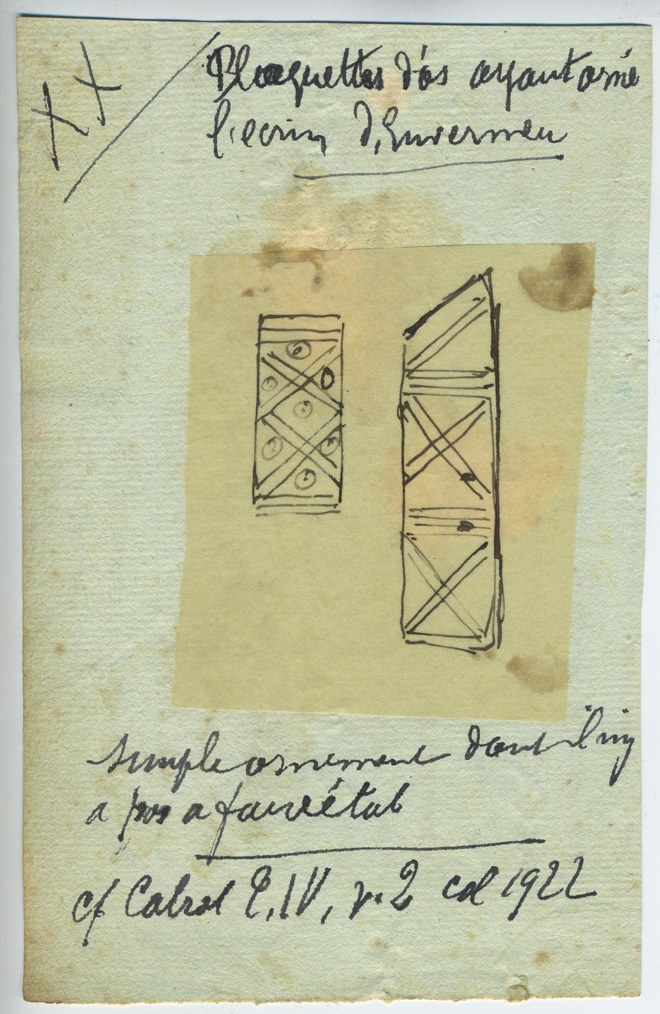 XX
Plaquettes d'os ayant orné
l'ecrin d'Envermeu
simple ornement dont il n'y
a pas a faire état
cf Cabrol T. IV, v. 2 col 1922